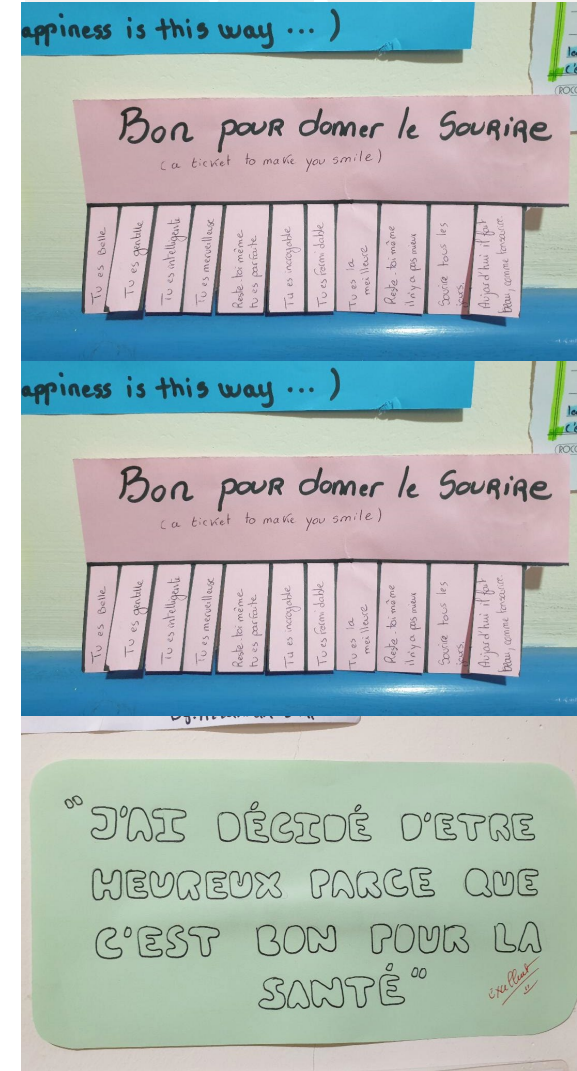 appiness is this way ... )
Bon pour donner le Sourire
(a ticket to make you smile)
Tu es Belle
Tu es gentille
Tu es intelligente
Tu es merveilleuse
Reste toi même
tu es parfaite
Tu es incroyable
Tu es formidable
Tu es la
meilleure
Reste-toi même
il n'y a pas mieux
Sourire tous les
jours.
Aujourd'hui il fait
beau, comme ton sourire.
appiness is this way ... )
Bon pour donner le Sourire
(a ticket to make you smile)
Tu es Belle
Tu es gentille
Tu es intelligente
Tu es merveilleuse
Reste toi même
tu es parfaite
Tu es incroyable
Tu es formidable
Tu es la
meilleure
Reste-toi même
il n'y a pas mieux
Sourire tous les
jours.
Aujourd'hui il fait
beau, comme ton sourire.
"J'AI DÉCIDÉ D'ETRE
HEUREUX PARCE QUE
C'EST BON POUR LA
SANTÉ"
exellent